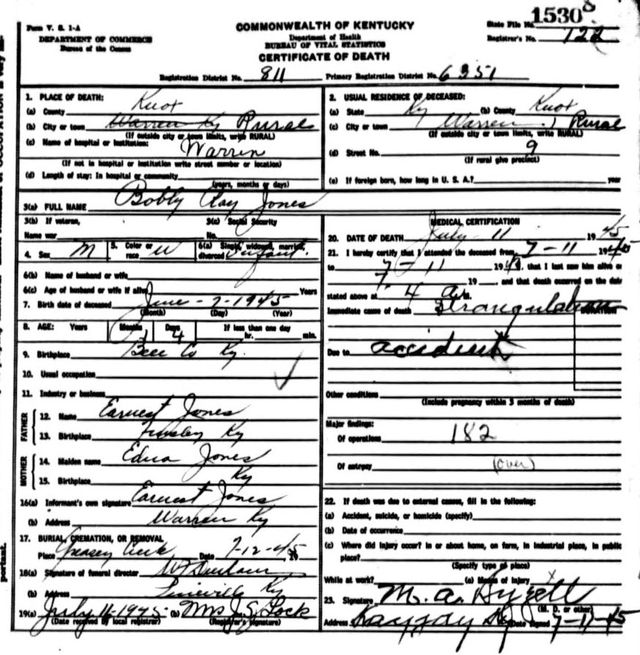 Form V. S. 1-A
DEPARTMENT OF COMMERCE
Bureau of the Census
COMMONWEALTH OF KENTUCKY
Department of Health
BUREAU OF VITAL STATISTICS
CERTIFICATE OF DEATH
State File No. 15308
Registrar's No. 122
Registration District No. 811 Primary Registration District No. 6351
1. PLACE OF DEATH:
(a) County Knox
(b) City or town Warren Ky Rural
(If outside city or town limits, write RURAL)
(c) Name of hospital or institution: Warren
(If not in hospital or institution write street number or location)
(d) Length of stay: In hospital or community
(years, months or days)
2. USUAL RESIDENCE OF DECEASED:
(a) State Ky (b) County Knox
(c) City or town (Warren) Rural
(If outside city or town limits, write RURAL)
(d) Street No. 9
(If rural give precinct)
(e) If foreign born, how long in U. S. A.? year
3(a) FULL NAME Bobby Clay Jones
3(b) If veteran, 3(c) Social Security
Name war No.
4. Sex M 5. Color or race W 6(a) Single, widowed, married, divorced Infant
6(b) Name of husband or wife
6(c) Age of husband or wife if alive Years
7. Birth date of deceased June - 7 - 1945
(Month) (Day) (Year)
8. AGE: Years Months 1 Days 4 If less than one day
hr. min.
9. Birthplace Bell Co Ky.
10. Usual occupation
11. Industry or business
FATHER
12. Name Earnest Jones
13. Birthplace Tinsley Ky
MOTHER
14. Maiden name Edna Jones
15. Birthplace Ky
16(a) Informant's own signature Earnest Jones
(b) Address Warren Ky
17. BURIAL, CREMATION, OR REMOVAL
Place Greasy Creek Date 7-12-45
18(a) Signature of funeral director
(b) Address Pineville Ky
19(a) July 16-1945 (b) Mrs J. S. Lock
(Date received by local registrar) (Registrar's signature)
MEDICAL CERTIFICATION
20. DATE OF DEATH July 11 1945
21. I hereby certify that I attended the deceased from 7-11 1945
to 7-11 19 that I last saw him alive on
19 and that death occurred on the date
stated above at 4 a.m.
Immediate cause of death Strangulation
Due to accident
Other conditions
(Include pregnancy within 3 months of death)
Major findings:
Of operations 182
Of autopsy (over)
22. If death was due to external causes, fill in the following:
(a) Accident, suicide, or homicide (specify)
(b) Date of occurrence
(c) Where did injury occur? In or about home, on farm, in industrial place, in public
place?
(Specify type of place)
While at work? (e) Means of injury
23. Signature M. a.
(M. D. or other)
Address Kayjay Ky Date signed 7-11-45